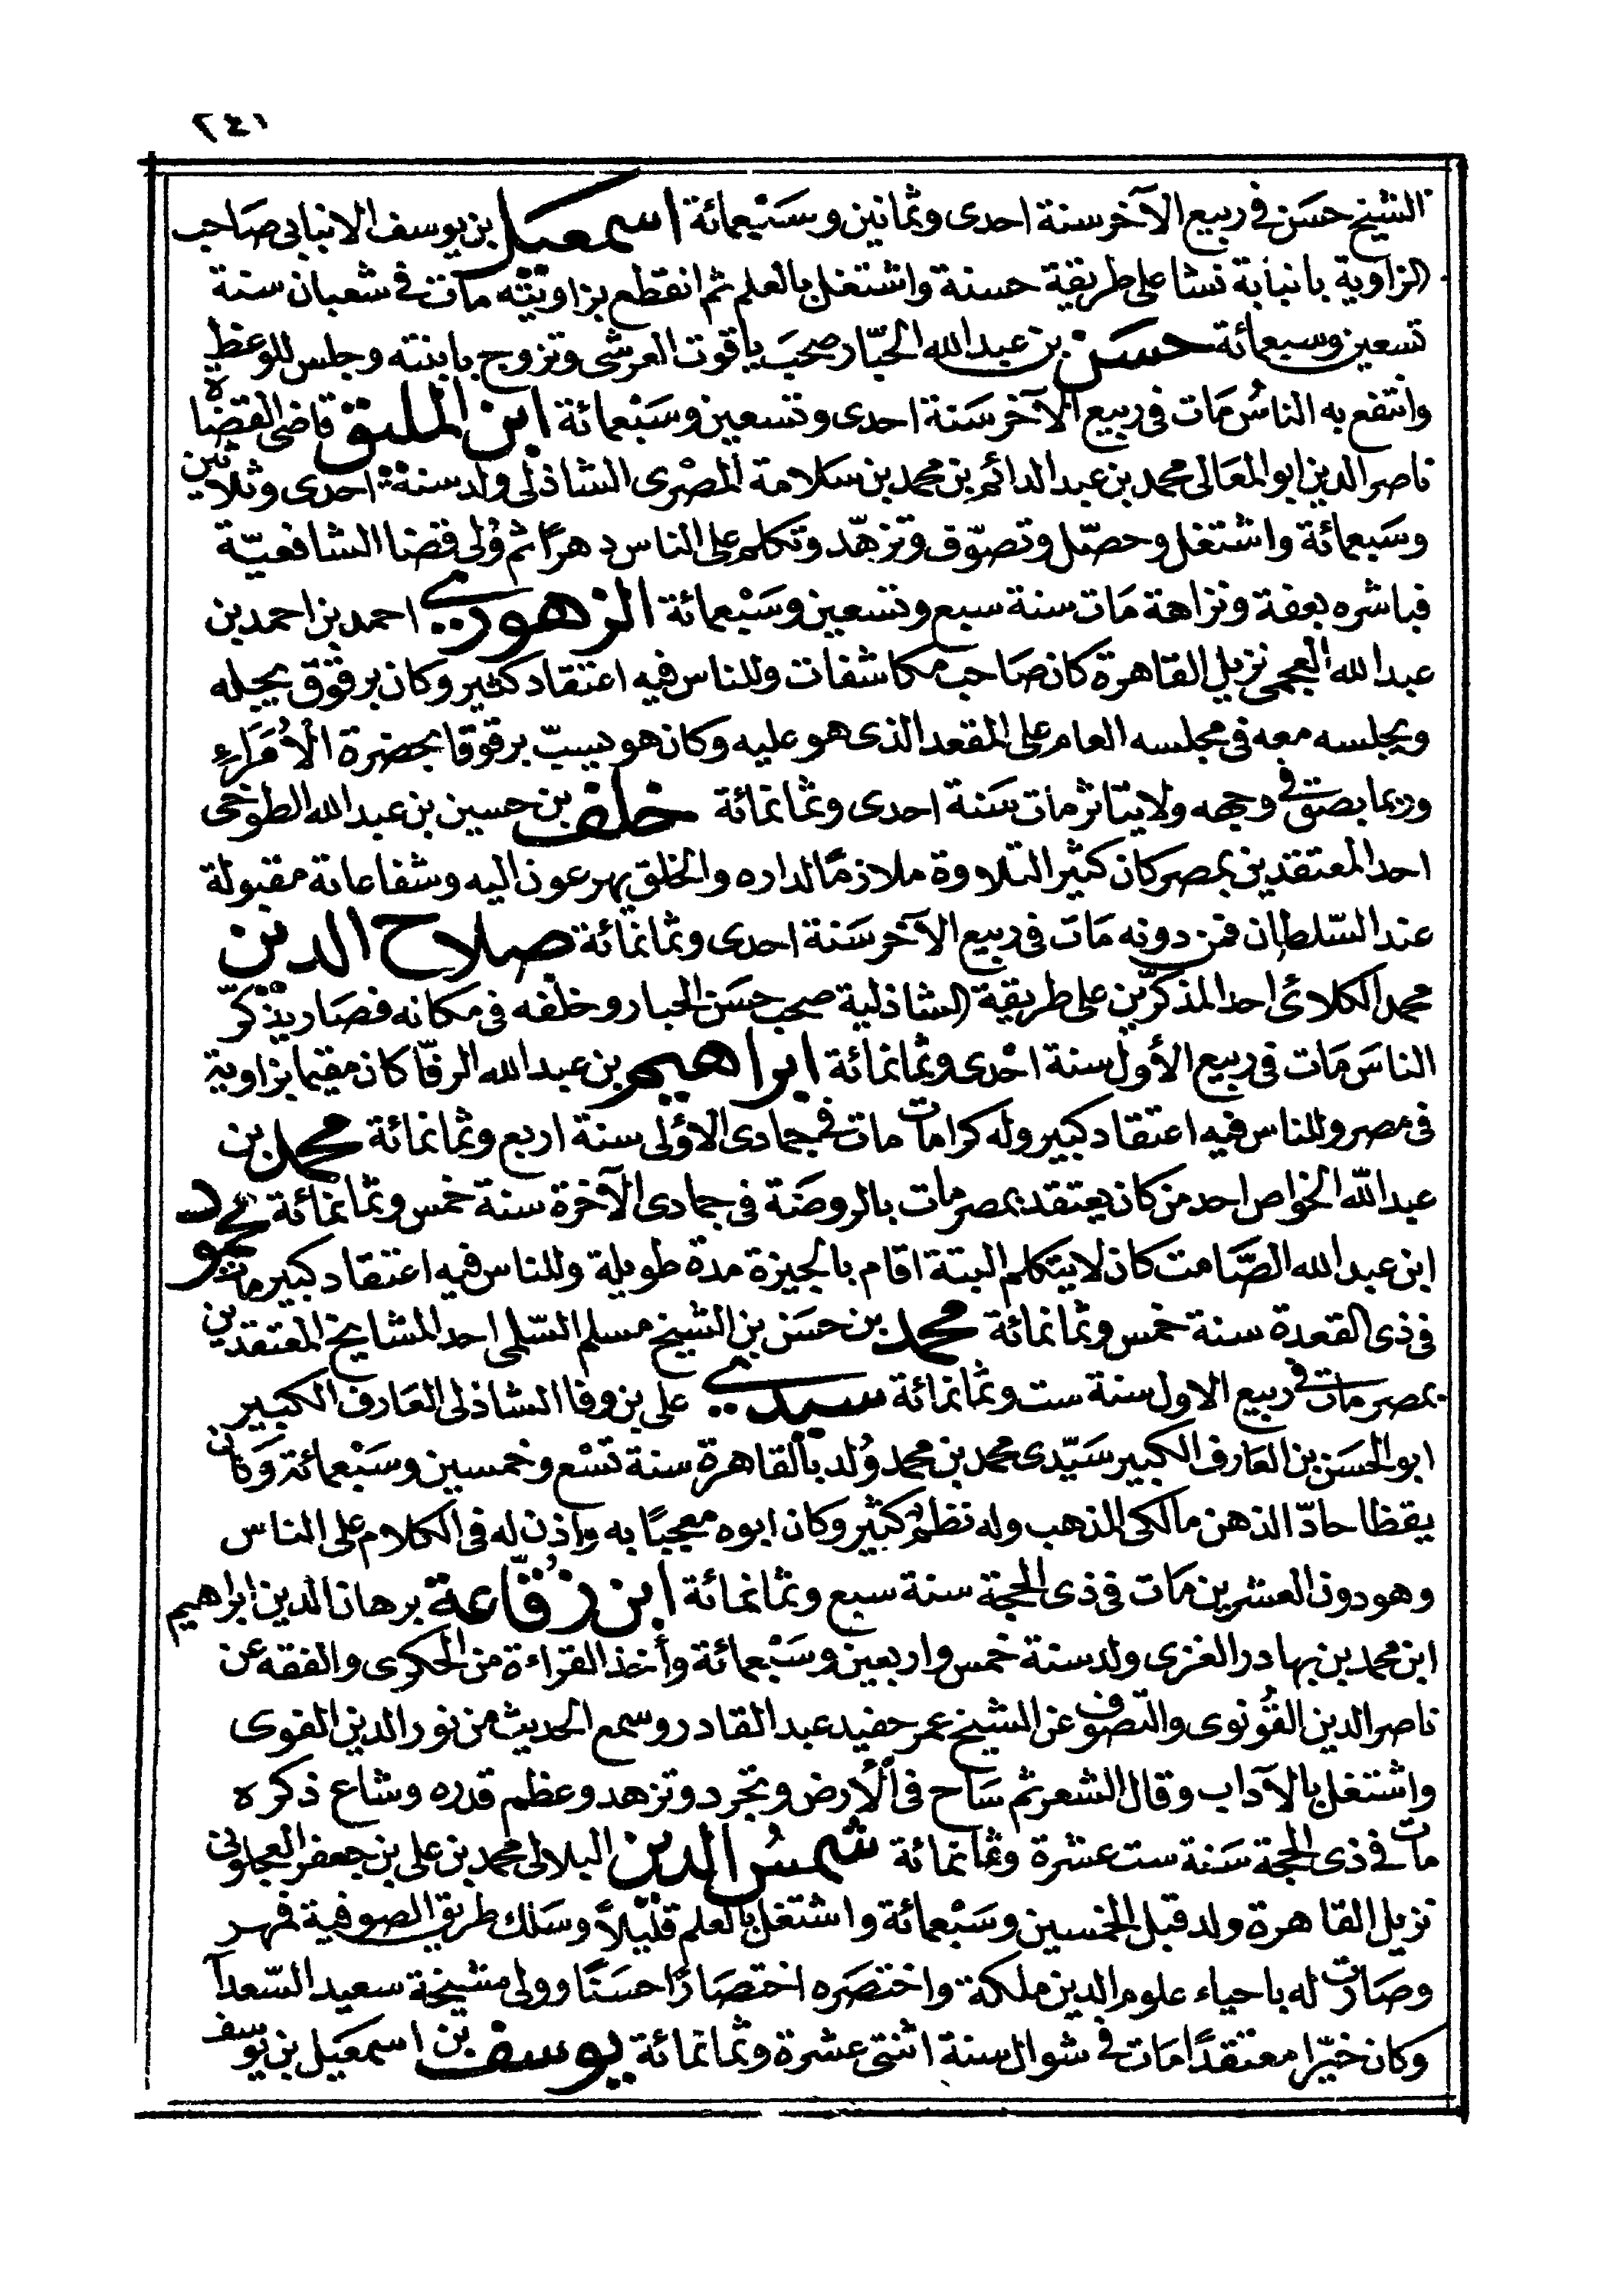 ٢٤١
الشيخ حسن في ربيع الآخر سنة احدى وثمانين وسَبْعمائة اسمعيل بن يوسف الانبابي صَاحب
الزاوية بانبابة نشا على طريقة حسنة واشتغل بالعلم ثم انقطع بزاويته مات في شعبان سنة
تسعين وسبعمائة حسن بن عبد الله الحبّار صحبَ ياقوت العرشي وتزوج بابنته وجلس للوعظ
وانتفع به الناسُ مَات في ربيع الآخر سَنة احدى وتسعين وسَبْعمائة ابن الملق قاضي القضاة
ناصر الدين ابو المعَالي محمد بن عبد الدائم بن محمد بن سَلامة المصْري الشاذلي ولد سنة احدى وثلاثين
وسَبعمائة واشتغل وحصّل وتصوّف وتزهّد وتكلم على الناس دهرًا ثم وُلى قضا الشافعيّة
فباشره بعفة ونزاهة مَات سنة سبع وتسعين وسَبْعمائة الزهوري احمد بن احمد بن
عبد الله العجمي نزيل القاهرة كان صَاحب مكاشفات وللناس فيه اعتقاد كثير وكان برقوق يجله
ويجلسه معه في مجلسه العام على المقعد الذي هو عليه وكان هو يسبّ برقوقا بحضرة الأمَراءِ
وربما بصق في وجهه ولا يتاثر مات سَنة احدى وثمانمائة خلف بن حسين بن عبد الله الطوخي
احد المعتقدين بمصر كان كثير التلاوة ملازمًا لداره والخلق يهرعون اليه وشفاعاته مقبولة
عند السّلطان فمن دونه مَات في ربيع الآخر سَنة احدى وثمانمائة صلاح الدين
محمد الكلائى احد المذكّرين على طريقة الشاذلية صحب حسَن الحبار وخلفه في مكانه فصَار يذكّر
الناسَ مَات في ربيع الأول سنة احْدى وثمانمائة ابراهيم بن عبد الله الرفّا كان مقيما بزاوية
في مصر وللناس فيه اعتقاد كبير وله كرامات مات في جمادى الاؤلى سنة اربع وثمانمائة محمد بن
عبد اللّه الخواص احد من كان يعتقد بمصر مات بالروضَة في جمادى الآخرة سنة خمس وثمانمائة محمد
ابن عبد الله الصَّامت كان لا يتكلم البتة اقام بالجيزة مدة طويلة وللناس فيه اعتقاد كبير مات
في ذي القعدة سنة خمس وثمانمائة محمد بن حسَن بن الشيخ مسلم السّلمي احد المشايخ المعتقدين
بمصر مات في ربيع الاول سنة ست وثمانمائة سيدي علي بن وفا الشاذلي العَارف الكبير
ابو الحسَن بن العَارف الكبير سَيّدى محمد بن محمد وُلد بالقاهرة سنة تسْع وخمسين وسَبْعمائة وَكان
يقظا حادّ الذهن مالكي المذهب وله نظمٌ كثير وكان ابوه معجبًا به واذن له في الكلام على الناس
وهو دون العشرين مَات في ذي الحجة سنة سبع وثمانمائة ابن زُقّاعة برهان الدين ابراهيم
ابن محمد بن بهادر الغزى ولد سنة خمس واربعين وسَبْعمائة وأخذ القراءة من الحكرى والفقه عن
ناصر الدين القُونوى والتصوف عن الشيخ عمر حفيد عبد القادر وسمع الحديث من نور الدين الفوى
واشتغل بالآداب وقال الشعر ثم سَاح في الأرض وتجرد وتزهد وعظم قدره وشاع ذكره
مات في ذي الحجة سَنة ست عشرة وثمانمائة شمسُ الدين البلالي محمد بن علي بن جعفر العجلونى
نزيل القاهرة ولد قبل الخمسين وسَبْعمائة واشتغل بالعلم قليْلاً وسَلك طريق الصوفية فمهر
وصَارت له باحياء علوم الدين ملكة واختصَره اختصَارًا حسَنًا وولى مشيخة سعيد السّعدآ
وكان خيّرا معتقدًا مَات في شوال سنة اثنتي عشرة وثمانمائة يوسف بن اسمعيل بن يوسف